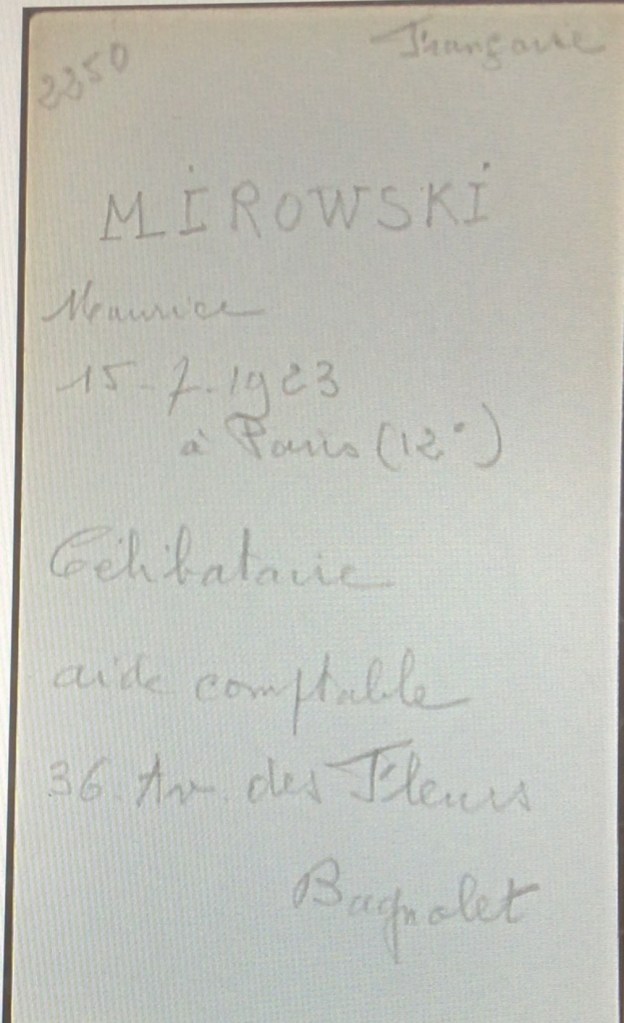 2250 Française
MIROWSKI
Maurice
15-7-1923
à Paris (12°)
Célibataire
aide comptable
36. Av. des Fleurs
Bagnolet